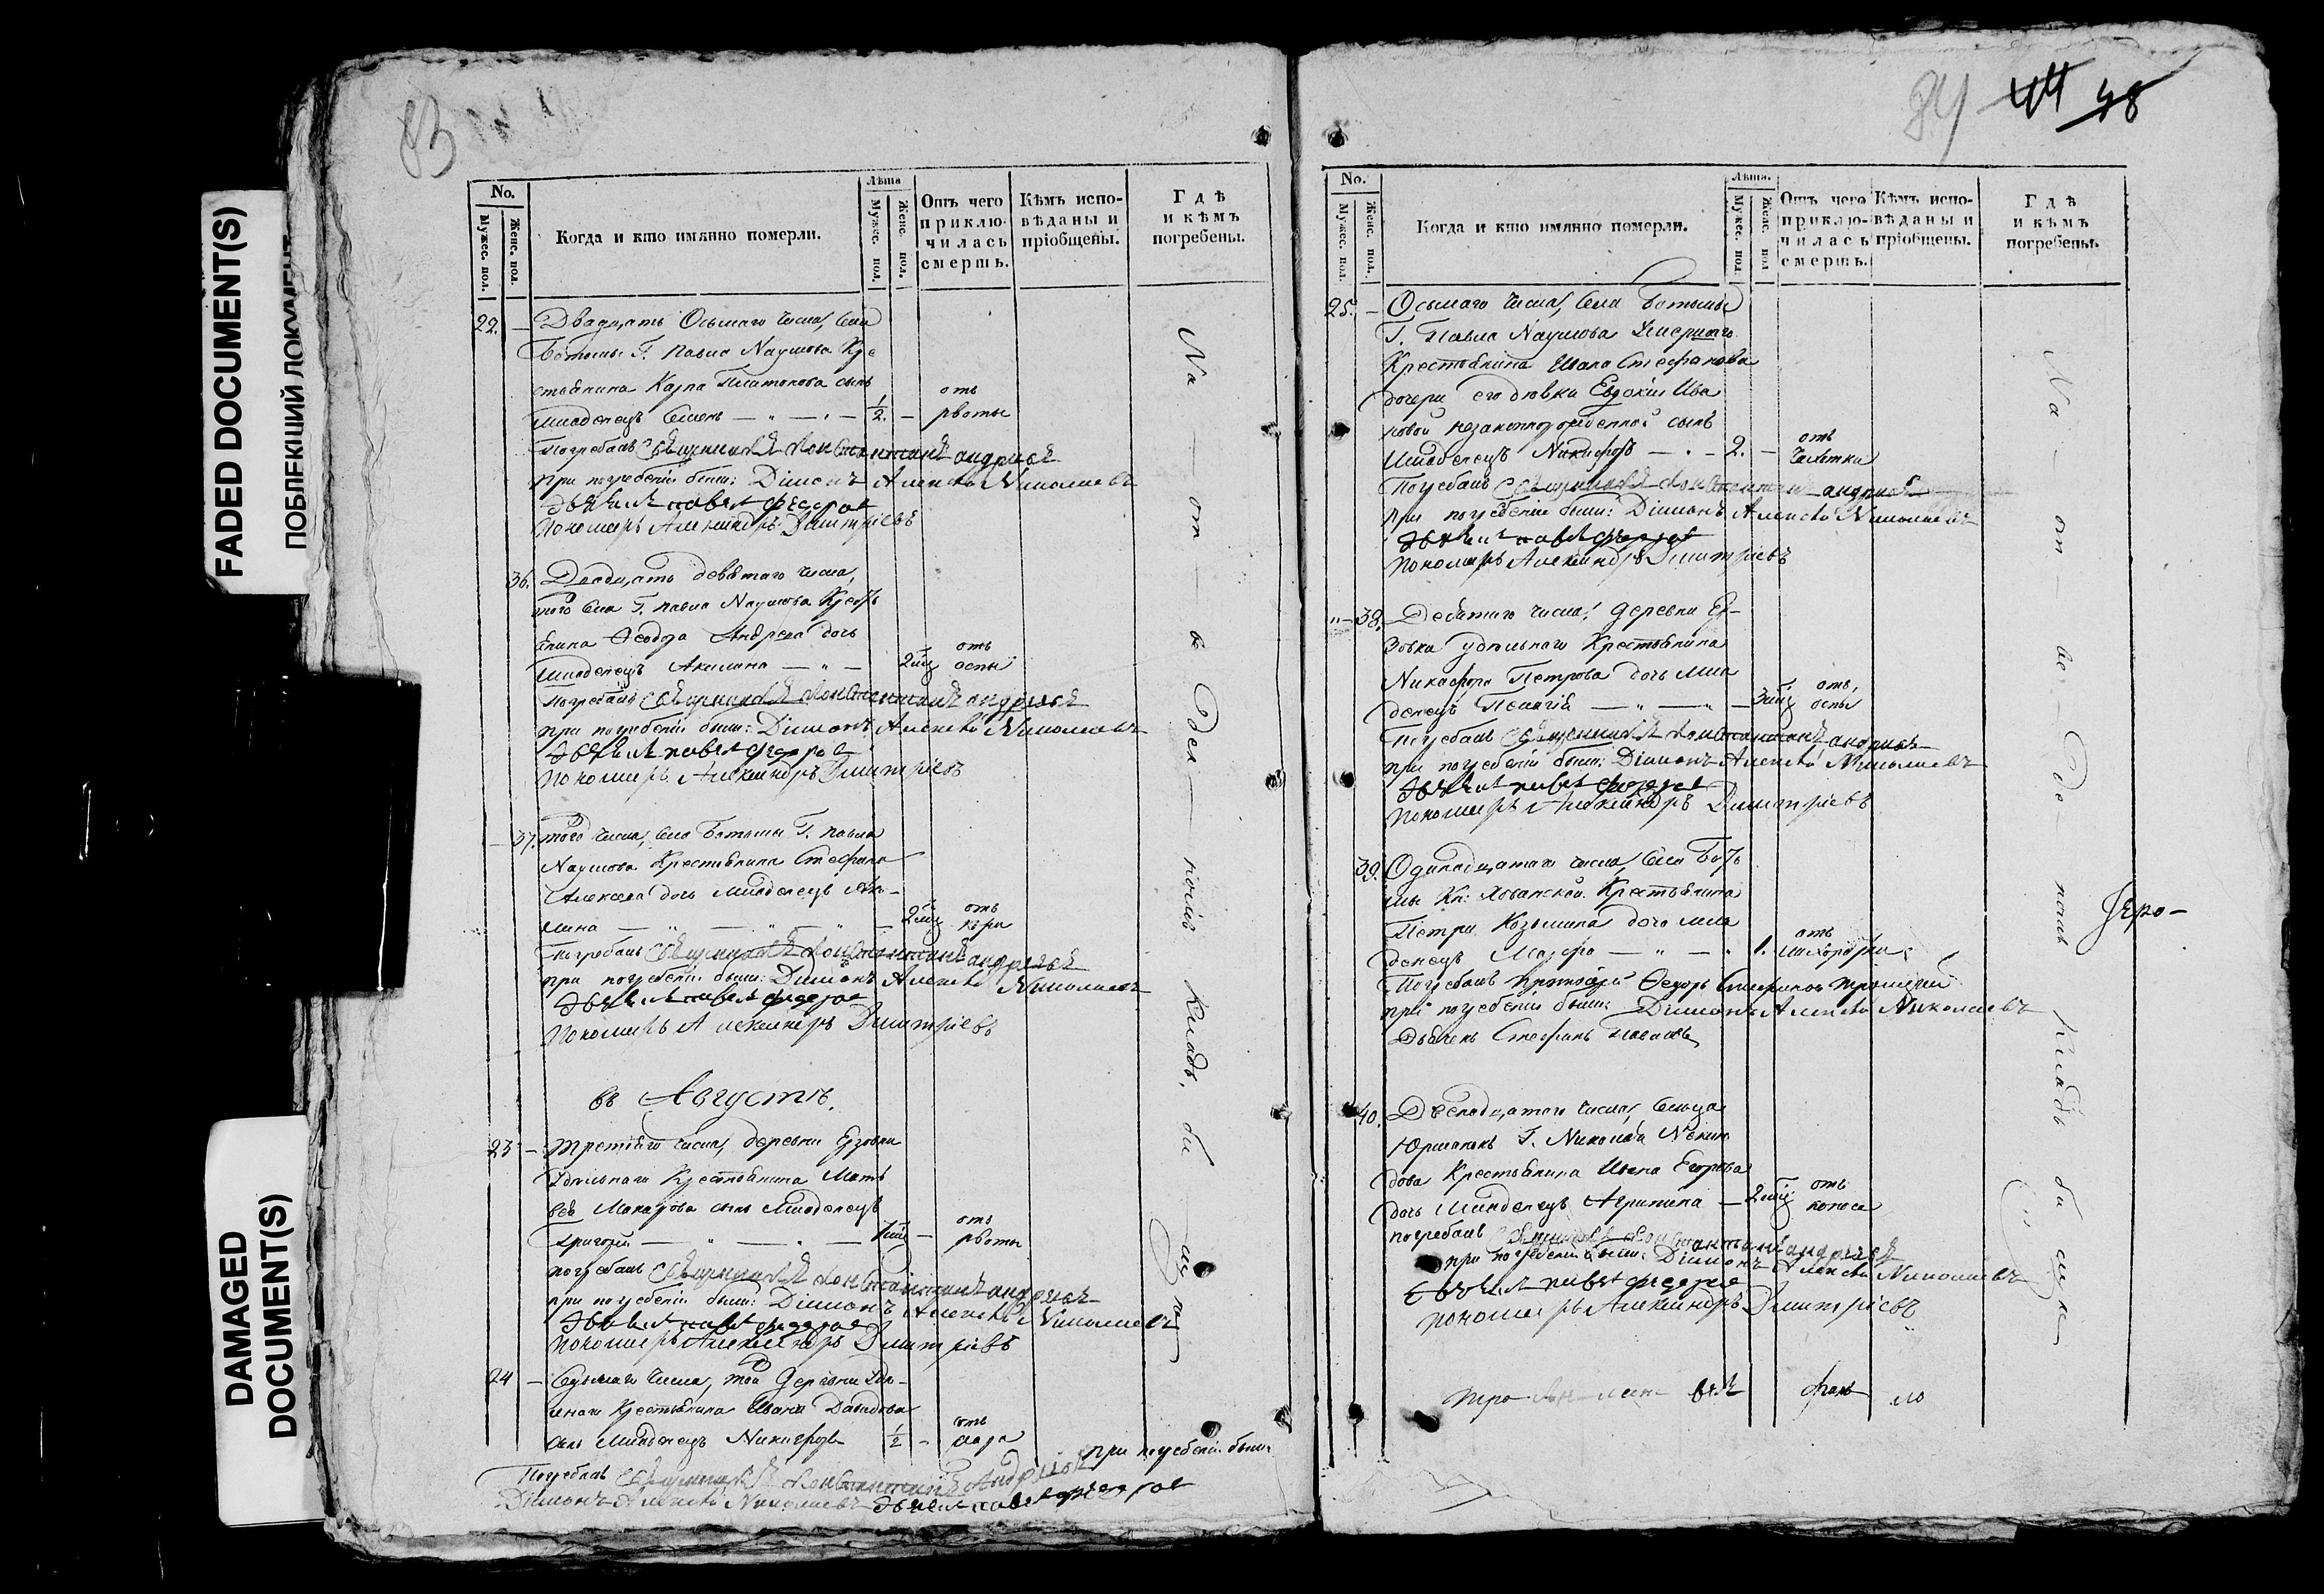 FADED DOCUMENT(S)
ПОБЛЕКШИЙ ДОКУМЕНТ
DAMAGED
DOCUMENT(S)
83
No.
Мужес. пол.
Женс. пол.
Когда и кто имянно померли.
Лѣта
Мужес. пол.
Женс. пол.
Отъ чего
приклю-
чилась
смерть.
Кѣмъ испо-
вѣданы и
пріобщены.
Гдѣ
и кѣмъ
погребены.
22. — Двадцать Осьмаго числа, Села
Ботьмы Г. Павла Наумова Кре
стьянина Карпа Платонова сынъ
младенецъ Семенъ — 1/2. — отъ рвоты
Погребалъ Священникъ Константинъ Андреевъ
при погребеніи были: Діаконъ Алексѣй Николаевъ
Дьячекъ Павелъ Федоровъ
Пономарь Александръ Димитріевъ
36. Двадцать девятаго числа,
того села Г. Павла Наумова Кресть
янина Ѳеодора Андреева дочь
младенецъ Акилина — 2 мѣ отъ оспы
Погребалъ Священникъ Константинъ Андреевъ
при погребеніи были: Діаконъ Алексѣй Николаевъ
Дьячекъ Павелъ Федоровъ
Пономарь Александръ Димитріевъ
— 37. того числа, села Ботьмы Г. Павла
Наумова Крестьянина Стефана
Алексеева дочь младенецъ Аки-
лина — 2 мѣ отъ кори
Погребалъ Священникъ Константинъ Андреевъ
при погребеніи были: Діаконъ Алексѣй Николаевъ
Дьячекъ Павелъ Федоровъ
Пономарь Александръ Димитріевъ
въ Августѣ.
23 — третьяго числа, деревни Ерзовки
Удѣльнаго Крестьянина Матѳ
ѣя Макарова сынъ младенецъ
Григорій — 1 мѣ — отъ рвоты
погребалъ Священникъ Константинъ Андреевъ
при погребеніи были: Діаконъ Алексѣй Николаевъ
Дьячекъ Павелъ Федоровъ
Пономарь Александръ Димитріевъ
24 — Седьмаго числа, той деревни Удѣ-
льнаго Крестьянина Ивана Давыдова
сынъ младенецъ Никифоръ 1/2 — отъ
Погребалъ Священникъ Константинъ Андреевъ при погребеніи были
Діаконъ Алексѣй Николаевъ Дьячекъ Павелъ Федоровъ
На — от — ве — ден — номъ кладъ. би — щѣ
84 44 48
No.
Мужес. пол.
Женс. пол.
Когда и кто имянно померли.
Лѣта.
Мужес. пол.
Женс. пол
Отъ чего
приклю-
чилась
смерть.
Кѣмъ испо-
вѣданы и
пріобщены.
Гдѣ
и кѣмъ
погребены.
25. — Осьмаго числа, села Ботьмы
Г. Павла Наумова Умершаго
Крестьянина Ивана Стефанова
дочери его дѣвки Евдокіи Ива
новой незаконнорожденной сынъ
младенецъ Никифоръ — 2. — отъ чахотки
Погребалъ Священникъ Константинъ Андреевъ
при погребеніи были: Діаконъ Алексѣй Николаевъ
Дьячекъ Павелъ Федоровъ
Пономарь Александръ Димитріевъ
„ — 38. — Девятаго числа, деревни Ер-
зовки удѣльнаго Крестьянина
Никифора Петрова дочь мла
денецъ Пелагія — 3 мѣ отъ оспы
Погребалъ Священникъ Константинъ Андреевъ
при погребеніи были: Діаконъ Алексѣй Николаевъ
Дьячекъ Павелъ Федоровъ
Пономарь Александръ Димитріевъ
39. Одинадцатаго числа, села Боть
мы Кн: Хованской Крестьянина
Петра Козьмина дочь мла
денецъ Марфа — 1. отъ лихорадки
Погребалъ протоіерей Ѳедоръ Стефановъ Троицкій
при погребеніи были: Діаконъ Алексѣй Николаевъ
Дьячекъ Стефанъ
40. Двенадцатаго числа, Сельца
Юрманокъ Г. Николая
дова Крестьянина Ивана Егорова
дочь младенецъ Агрипина — 2 мѣ отъ поноса
погребалъ Священникъ Константинъ Андреевъ
при погребеніи были: Діаконъ Алексѣй Николаевъ
Дьячекъ Павелъ Федоровъ
Пономарь Александръ Димитріевъ
На — от — ве — де — номъ кладъ би щѣ